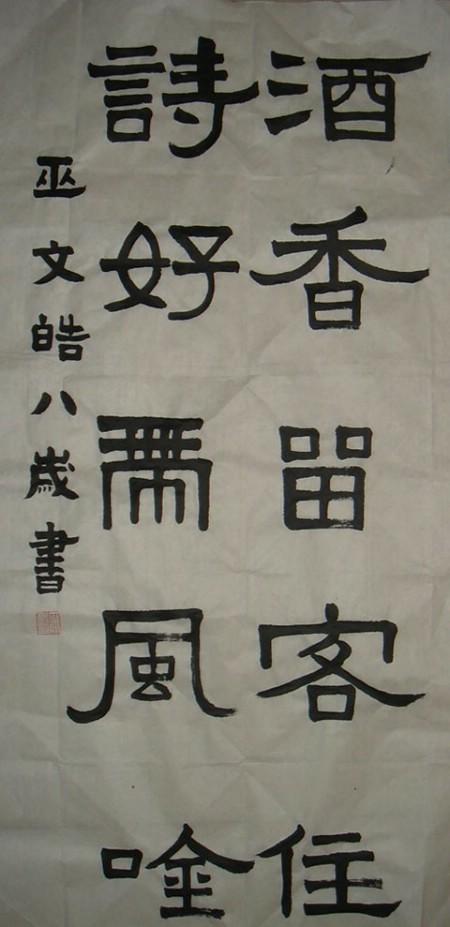 酒香留客住
詩好帶風唫
巫文皓八歲書